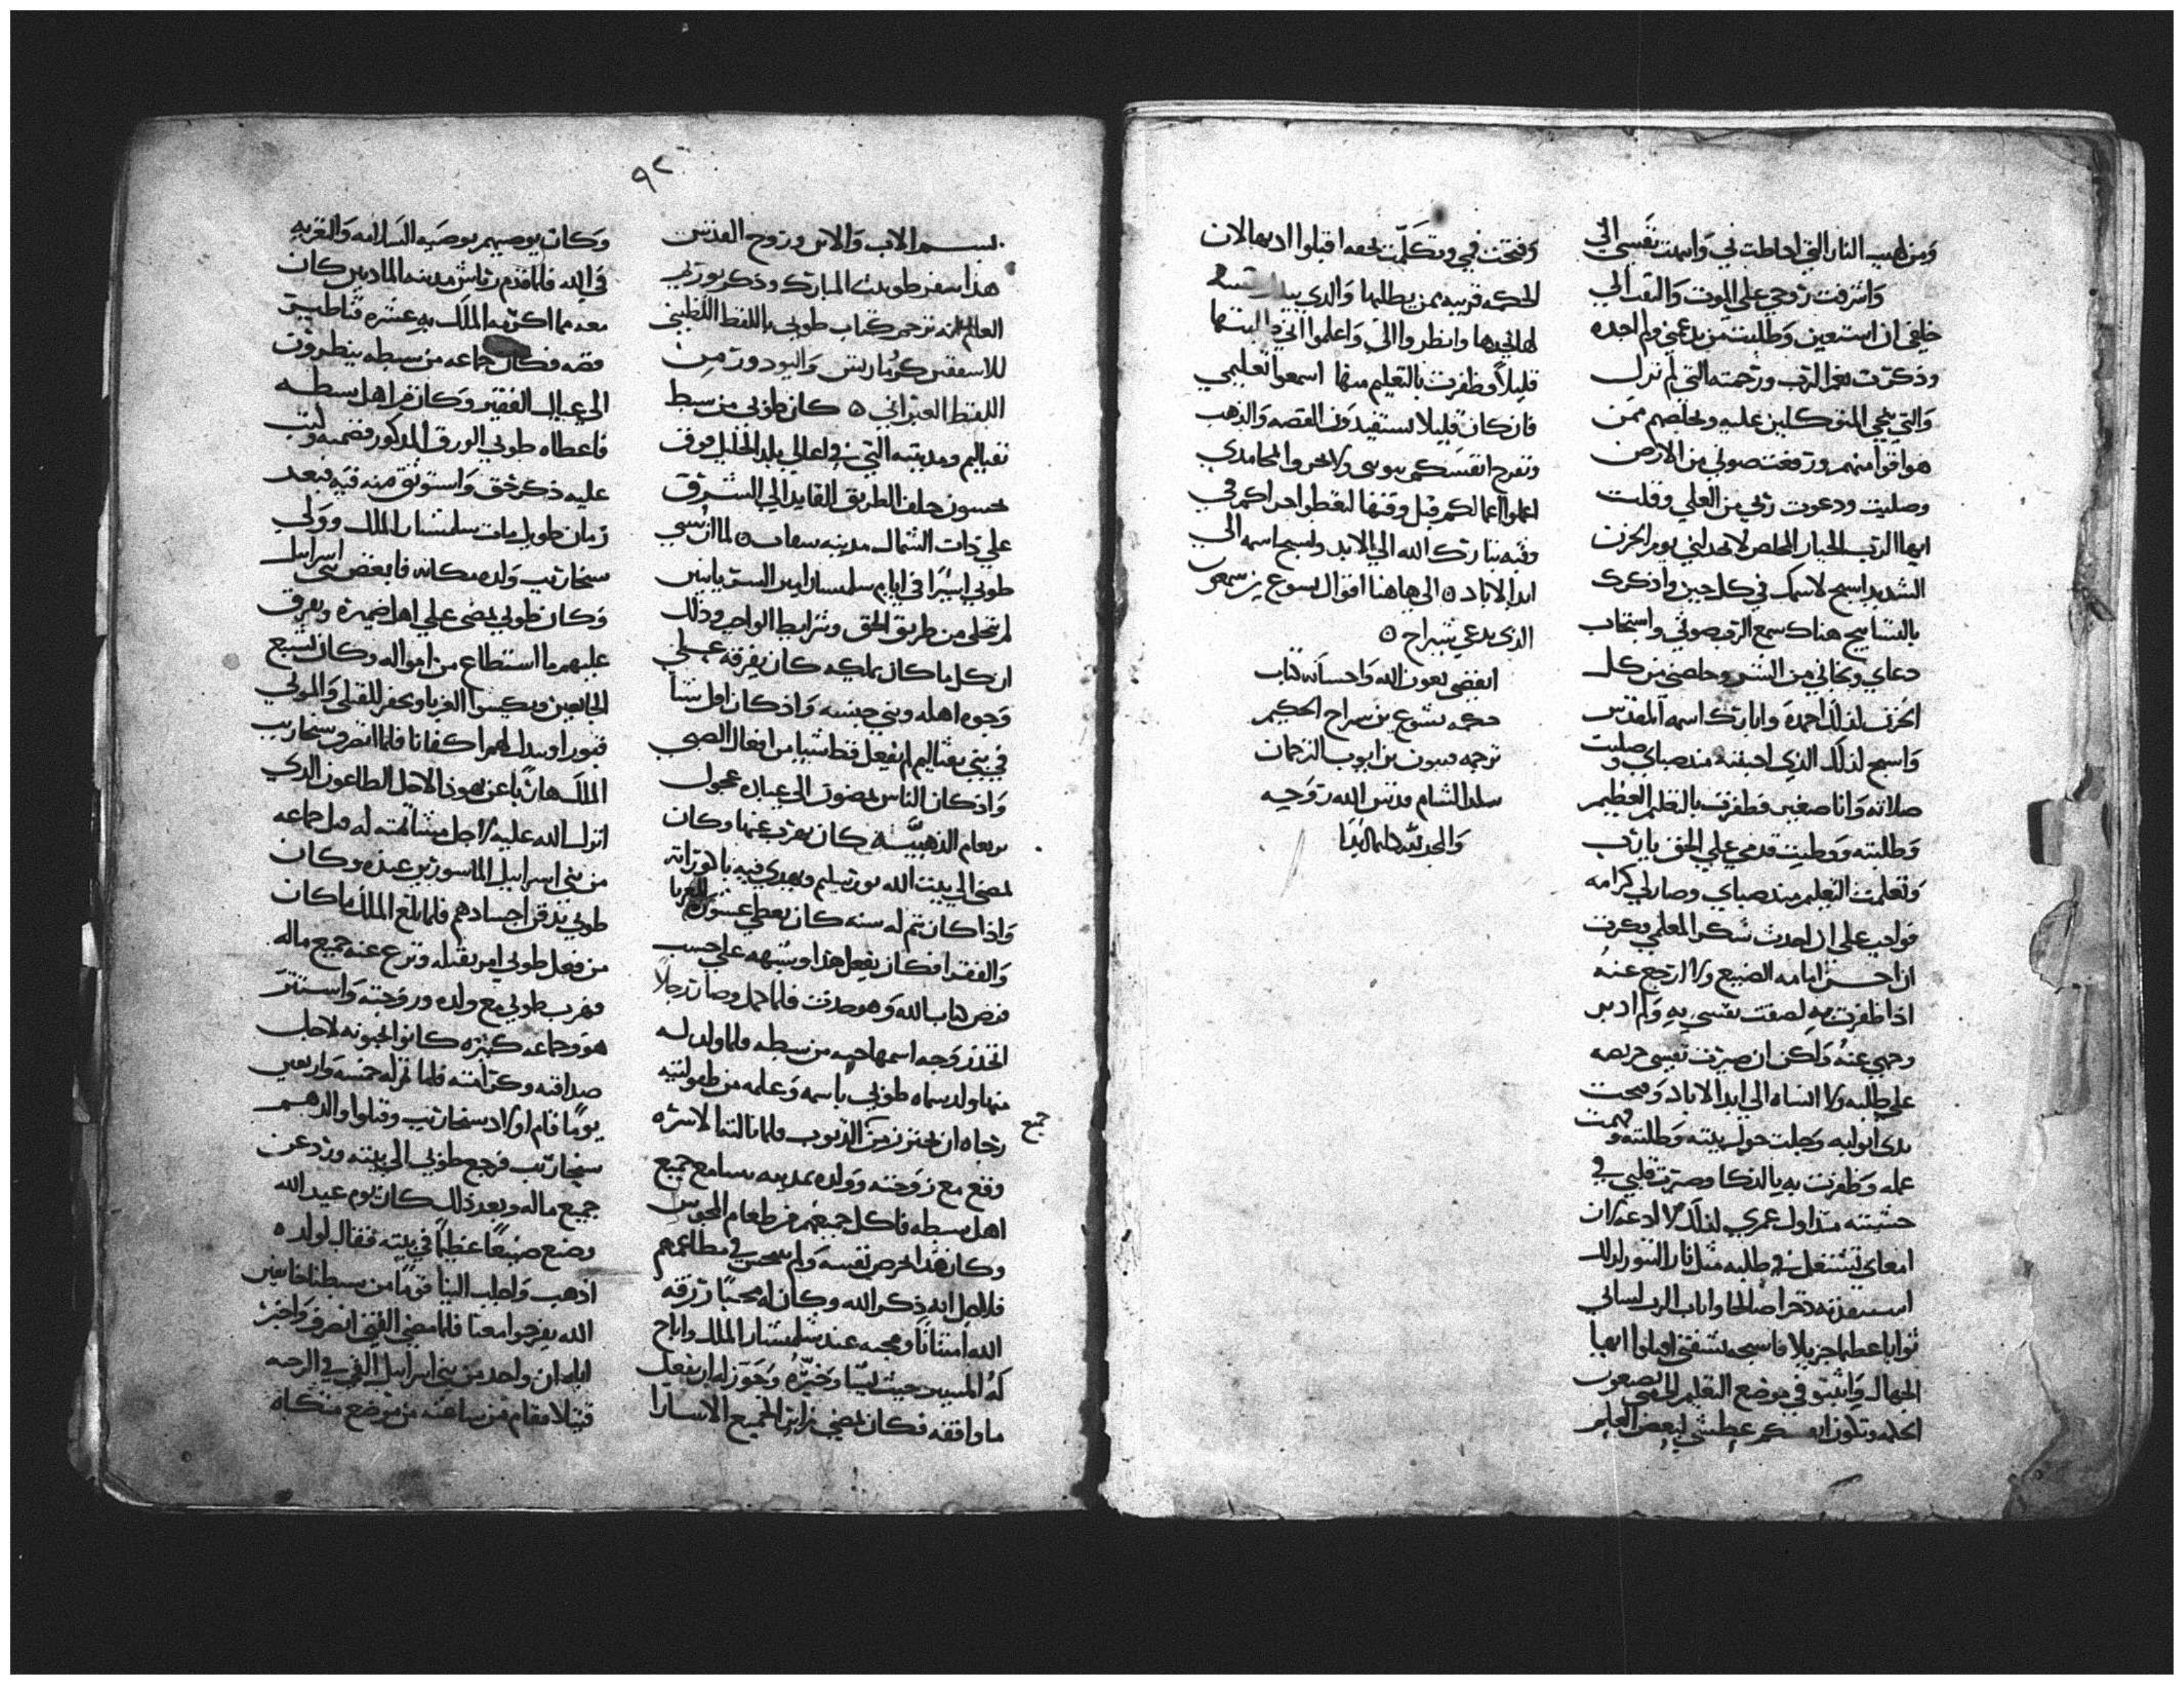 ومن لهيب النار التي احاطت بي واسلمت نفسي الي
واشرفت روحي علي الموت والتفت الي
خلفي ان استعين وطلبت من يدعمني ولم اجده
وذكرت نعم الرب ورحمته التي لم تزل
والتي تنجي المتوكلين عليه وتخلصهم ممن
هو اقوا منهم ورفعت صوتي من الارض
وصليت ودعوت ربي من العلي وقلت
ايها الرب الجبار المخلص لا تخذلني يوم الحزن
الشديد اسبح لاسمك في كل حين واذكرك
بالتسابيح هناك سمع الرب صوتي واستجاب
دعاي ونجاني من الشر وخلصني من كل
الحزن لذلك احمده وابارك اسمه المقدس
واسبح لذلك الذي احببته منذ صباي وصليت
صلاته وانا صغير فظفرت بالتعلم العظيم
وطلبته ووطيت قدمي علي الحق يا رب
وتعلمت التعلم منذ صباي وصار لي كرامه
فواجب علي ان احدث شكر المعلمي وفكرت
ان احسن اليه الصنيع ولا ارجع عنه
اذا ظفرت به لصقت نفسي به ولم ادير
وجهي عنه ولكن ان صيرت نفسي حريصه
علي طلبه ولا انساه الي ابد الاباد وفتحت
يدي ابوابه وجلت حول بيته وطلبته وفهمت
عمله وظفرت به بالذكا وصيرت قلبي في
خشيته منذ اول عمري لذلك لا ادعه لان
امعاي تشتعل في طلبه مثل نار التنور لذلك
استفدته ذخرا صالحا واثاب الرب لساني
ثوابا عظيما جزيلا فاسبحه بشفتي اقبلوا ايها
الجهال واثبتو في موضع التعلم لتضعون
الحكمه وتكون انفسكم عطشي لبعض العلم
وفتحت فمي وتكلمت بحقه اقبلوا اديها الان
الحكمه قريبه ممن يطلبها والذي
لها يجدها وانظروا الي واعلموا اني
قليلا وظفرت بالتعليم منها اسمعوا تعليمي
فان كان قليلا تستفيدون الفضه والذهب
وتفرح انفسكم
اعملوا اعمالكم قبل وقتها لتعطوا اجراكم في
وقته تبارك الله الي الابد ولنسبح اسمه الي
ابد الاباد ٥ الي ها هنا اقوال يسوع بن سمعون
الذي يدعي بشراح ٥
انقضي بعون الله واحسانه كتاب
حكمه يشوع بن سراح الحكيم
ترجمه بن ايوب الترجمان
الشام قدس الله روحه
والحمد لله دايما ابدا
٩٢
بسم الاب والابن وروح القدس
هذا سفر طوبيت المبارك وذكر بورتي
العالم انه ترجم كتاب طوبي باللفظ اللطيني
للاسقفين كرماريس واليودور من
اللفظ العبراني ٥ كان طوبي من سبط
نفتاليم ومدينته التي في اعالي بلد الجليل فوق
نحسون خلف الطريق القايد الي الشرق
علي ذات الشمال مدينه سفاف ٥ لما ان سبي
طوبي اسيرا في ايام سلمنسار امير السريانيين
لم يتخلى من طريق الحق وشرايط الواجب وذلك
ان كل ما كان يملكه كان يفرقه علي
وجوه اهله وبني جنسه واذ كان اول نشا
في بني نفتاليم لم يفعل قط شيا من افعال الصبي
واذ كان الناس يمضون الي عبادة عجول
يربعام الذهبيه كان يهرب عنها وكان
يمضي الي بيت الله بورشليم ويهدي فيه باكوراته
واذا كان تم له سنه كان يعطي عشوره للغربا
والفقرا فكان يفعل هذا وشبهه علي حسب
فرض كتاب الله وهو حدث فلما كمل وصار رجلا
اتخذ زوجه اسمها حنه من سبطه فلما ولد له
منها ولد سماه طوبي باسمه وعلمه من طفولتيه
رجاه ان يحترز من الذنوب فلما نالته الاسره جميع
وقع مع زوجته وولده بمدينه نينوا مع جميع
اهل سبطه فاكل جميعهم من طعام المجوس
وكان هذا يحرص نفسه ولم يتنجس في مطاعمهم
فلاجل انه ذكر الله وكان له محبا رزقه
الله امتنانا ومحبه عند شلمنسار الملك واباح
له المسير حيث يشا وخيره وجوز له ان يفعل
ما وافقه فكان يمضي زايرا لجميع الاسارا
وكان يوصيهم بوصيه السلامه والتعزيه
في الله فلما قدم رقاش مدينه الماديين كان
معه مما اكرمه الملك به عشره قناطير
فضه فكان جماعه من سبطه ينظرون
الي غبال الفقير وكان من اهل سبطه
فاعطاه طوبي الورق المذكور فضمنه وكتب
عليه ذكر حق واستوثق منه فيه فبعد
زمان طويل مات سلمنسار الملك وولي
سنحاريب ولده مكانه فابغض بني اسرايل
وكان طوبي يمضي علي اهل ضيره ويفرق
عليهم ما استطاع من امواله وكان يشبع
الجايعين ويكسوا الغربا ويحفر للقتلي والموتي
قبورا ويبدل لهم اكفانا فلما انصرف سنحاريب
الملك هاربا عن يهوذا لاجل الطاعون الذي
انزل الله عليه لاجل مشاتمته له قتل جماعه
من بني اسرايل الماسورين عنده وكان
طوبي يدفن اجسادهم فلما بلغ الملك ما كان
من فعل طوبي امر بقتله ونزع عنه جميع ماله
فهرب طوبي مع ولده وزوجته واستتر
هو وجماعه كثيره كانوا يحبونه لاجل
صداقته وكرامته فلما تم له خمسه واربعين
يوما قام اولاد سنحاريب وقتلوا والدهم
سنحاريب فرجع طوبي الي بيته ورد عن
جميع ماله وبعد ذلك كان يوم عيد الله
وضع صنيعا عظيما في بيته فقال لولده
اذهب واطلب الينا قوما من سبطنا خايفين
الله يفرحوا معنا فلما مضي الفتي انصرف واخبر
اباه ان واحد من بني اسرايل القي في الرحبه
قتيلا فقام من ساعته من موضع متكاه